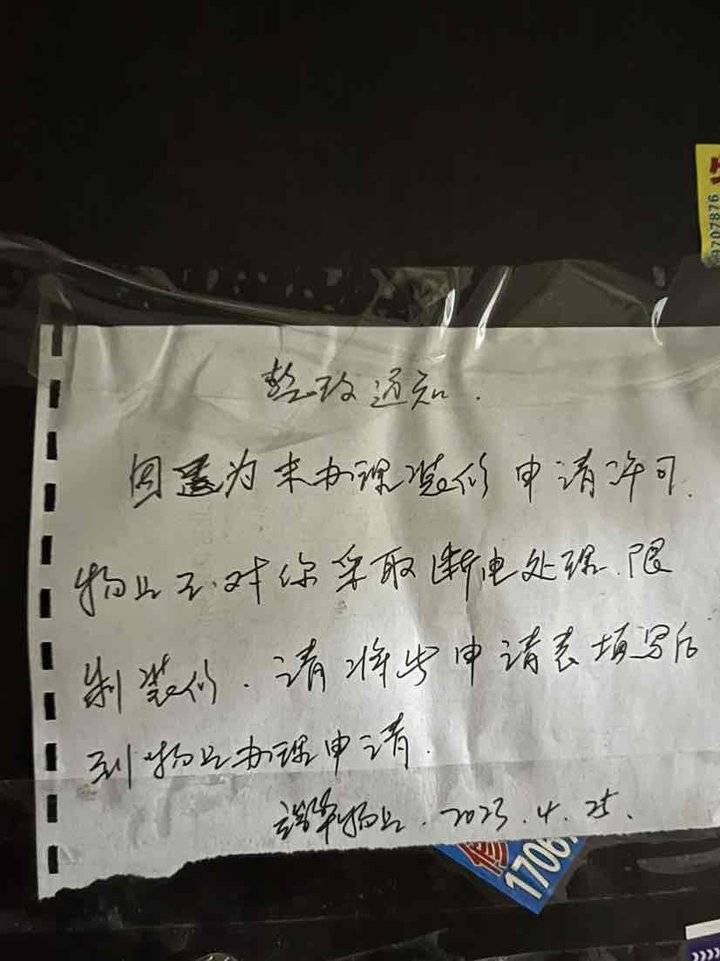 整改通知.
因为未办理装修申请许可.
物业正对你采取断电处理.限
制装修.请将此申请表填写后
到物业办理申请.
物业.2023.4.25.
707876
1706